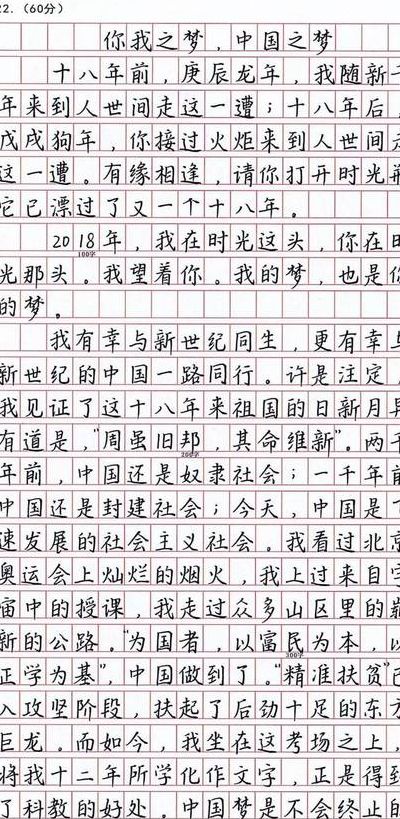 22.（60分）
你我之梦，中国之梦
十八年前，庚辰龙年，我随新千
年来到人世间走这一遭；十八年后，
戊戌狗年，你接过火炬来到人世间走
这一遭。有缘相逢，请你打开时光
它已漂过了又一个十八年。
2018年，我在时光这头，你在时
100字
光那头。我望着你。我的梦，也是你
的梦。
我有幸与新世纪同生，更有幸与
新世纪的中国一路同行。许是注定，
我见证了这十八年来祖国的日新月异
有道是，“周虽旧邦，其命维新”。两千
200字
年前，中国还是奴隶社会；一千年前
中国还是封建社会；今天，中国是
速发展的社会主义社会。我看过北京
奥运会上灿烂的烟火，我上过来自宇
宙中的授课，我走过众多山区里的
新的公路。“为国者，以富民为本，以
300字
正学为基”，中国做到了。“精准扶贫”已
入攻坚阶段，扶起了后劲十足的东方
巨龙。而如今，我坐在这考场之上，
将我十二年所学化作文字，正是得到
了科教的好处。中国梦是不会终止的